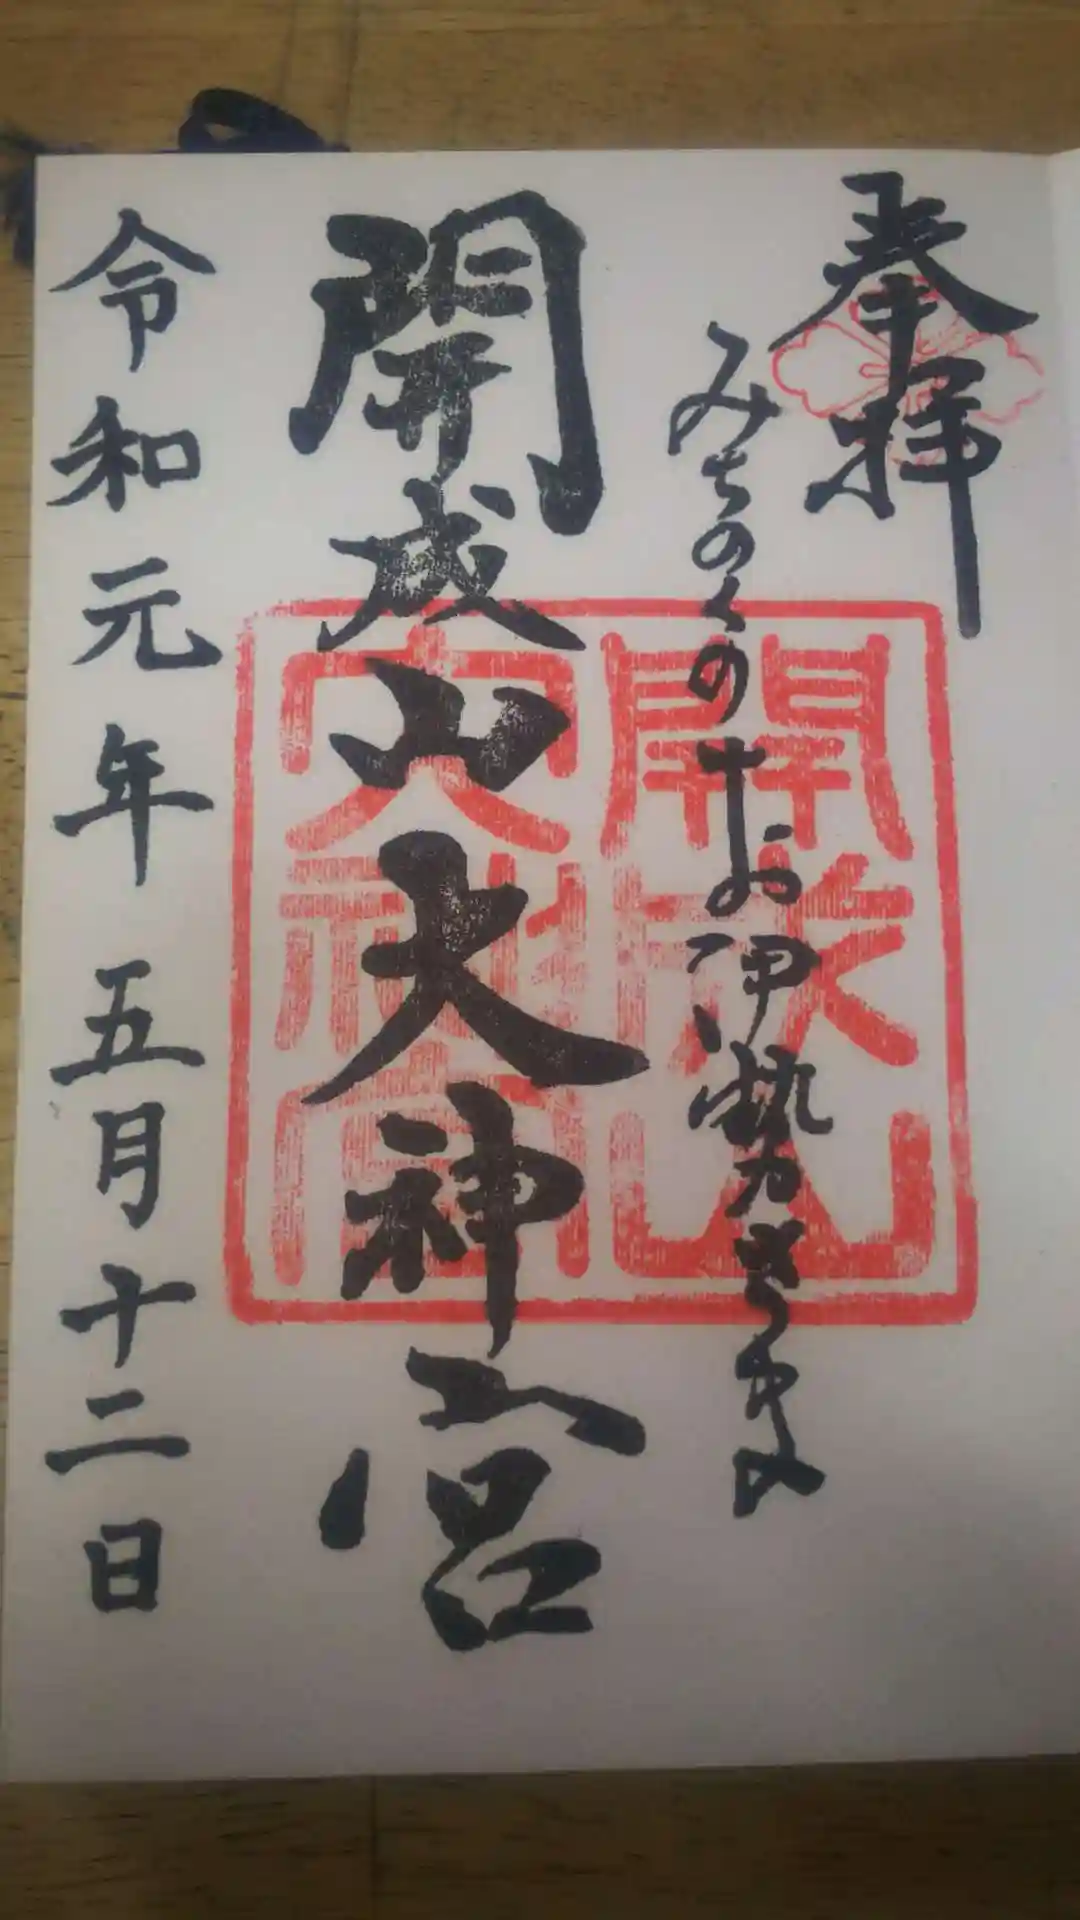 奉拝
みちのくのお伊勢さま
開成山大神宮
開成山
大神宮
令和元年五月十二日